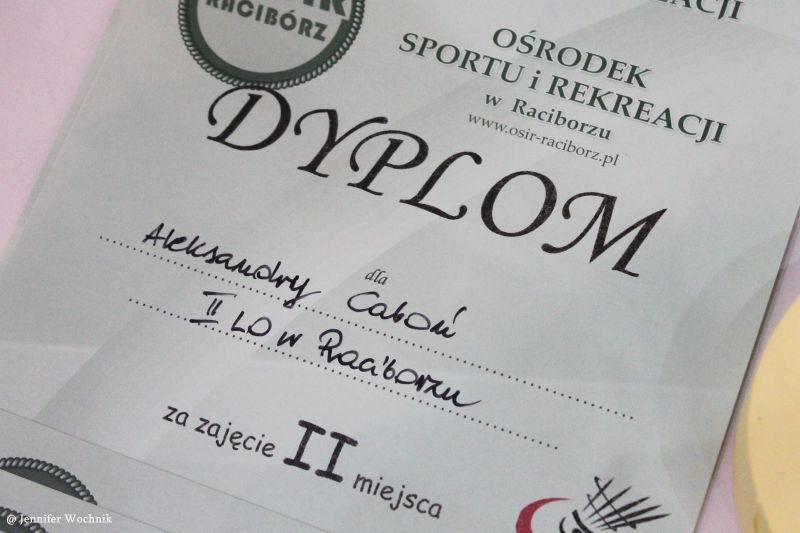 RACIBÓRZ
REKREACJI
OŚRODEK
SPORTU i REKREACJI
w Raciborzu
www.osir-raciborz.pl
DYPLOM
dla
Aleksandry Caboń
II LO w Raciborzu
za zajęcie II miejsca
@ Jennifer Wochnik